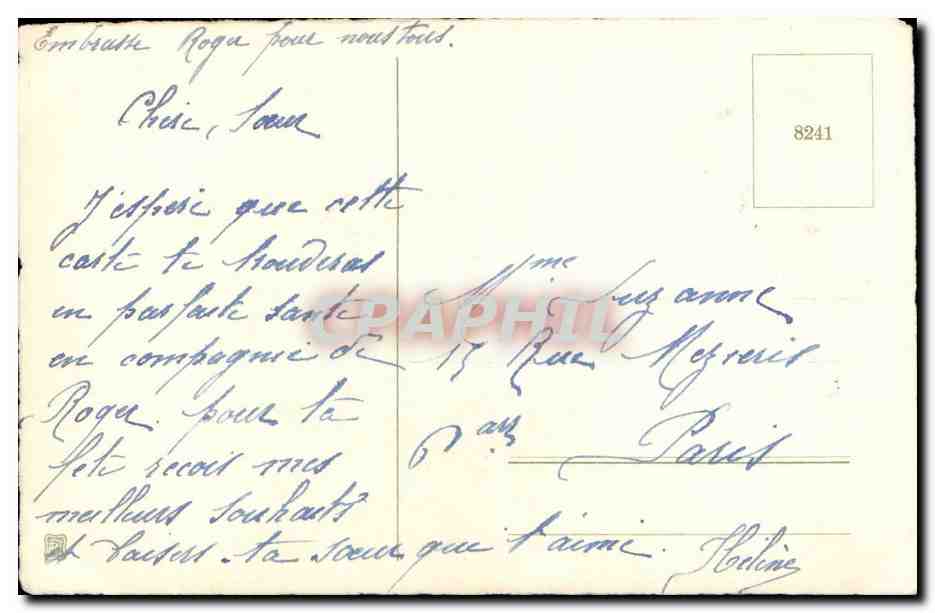 Embrasse Roger pour nous tous.
Chere, Sœur
J'espere que cette
carte te trouderas
en parfaite santé
en compagnie de
Roger. pour ta
fete recois mes
meilleurs souhaits
et baisers. ta sœur que t'aime.
Hélène
8241
Mme Suzanne
15 Rue
6e arr
Paris
CPAPHIL